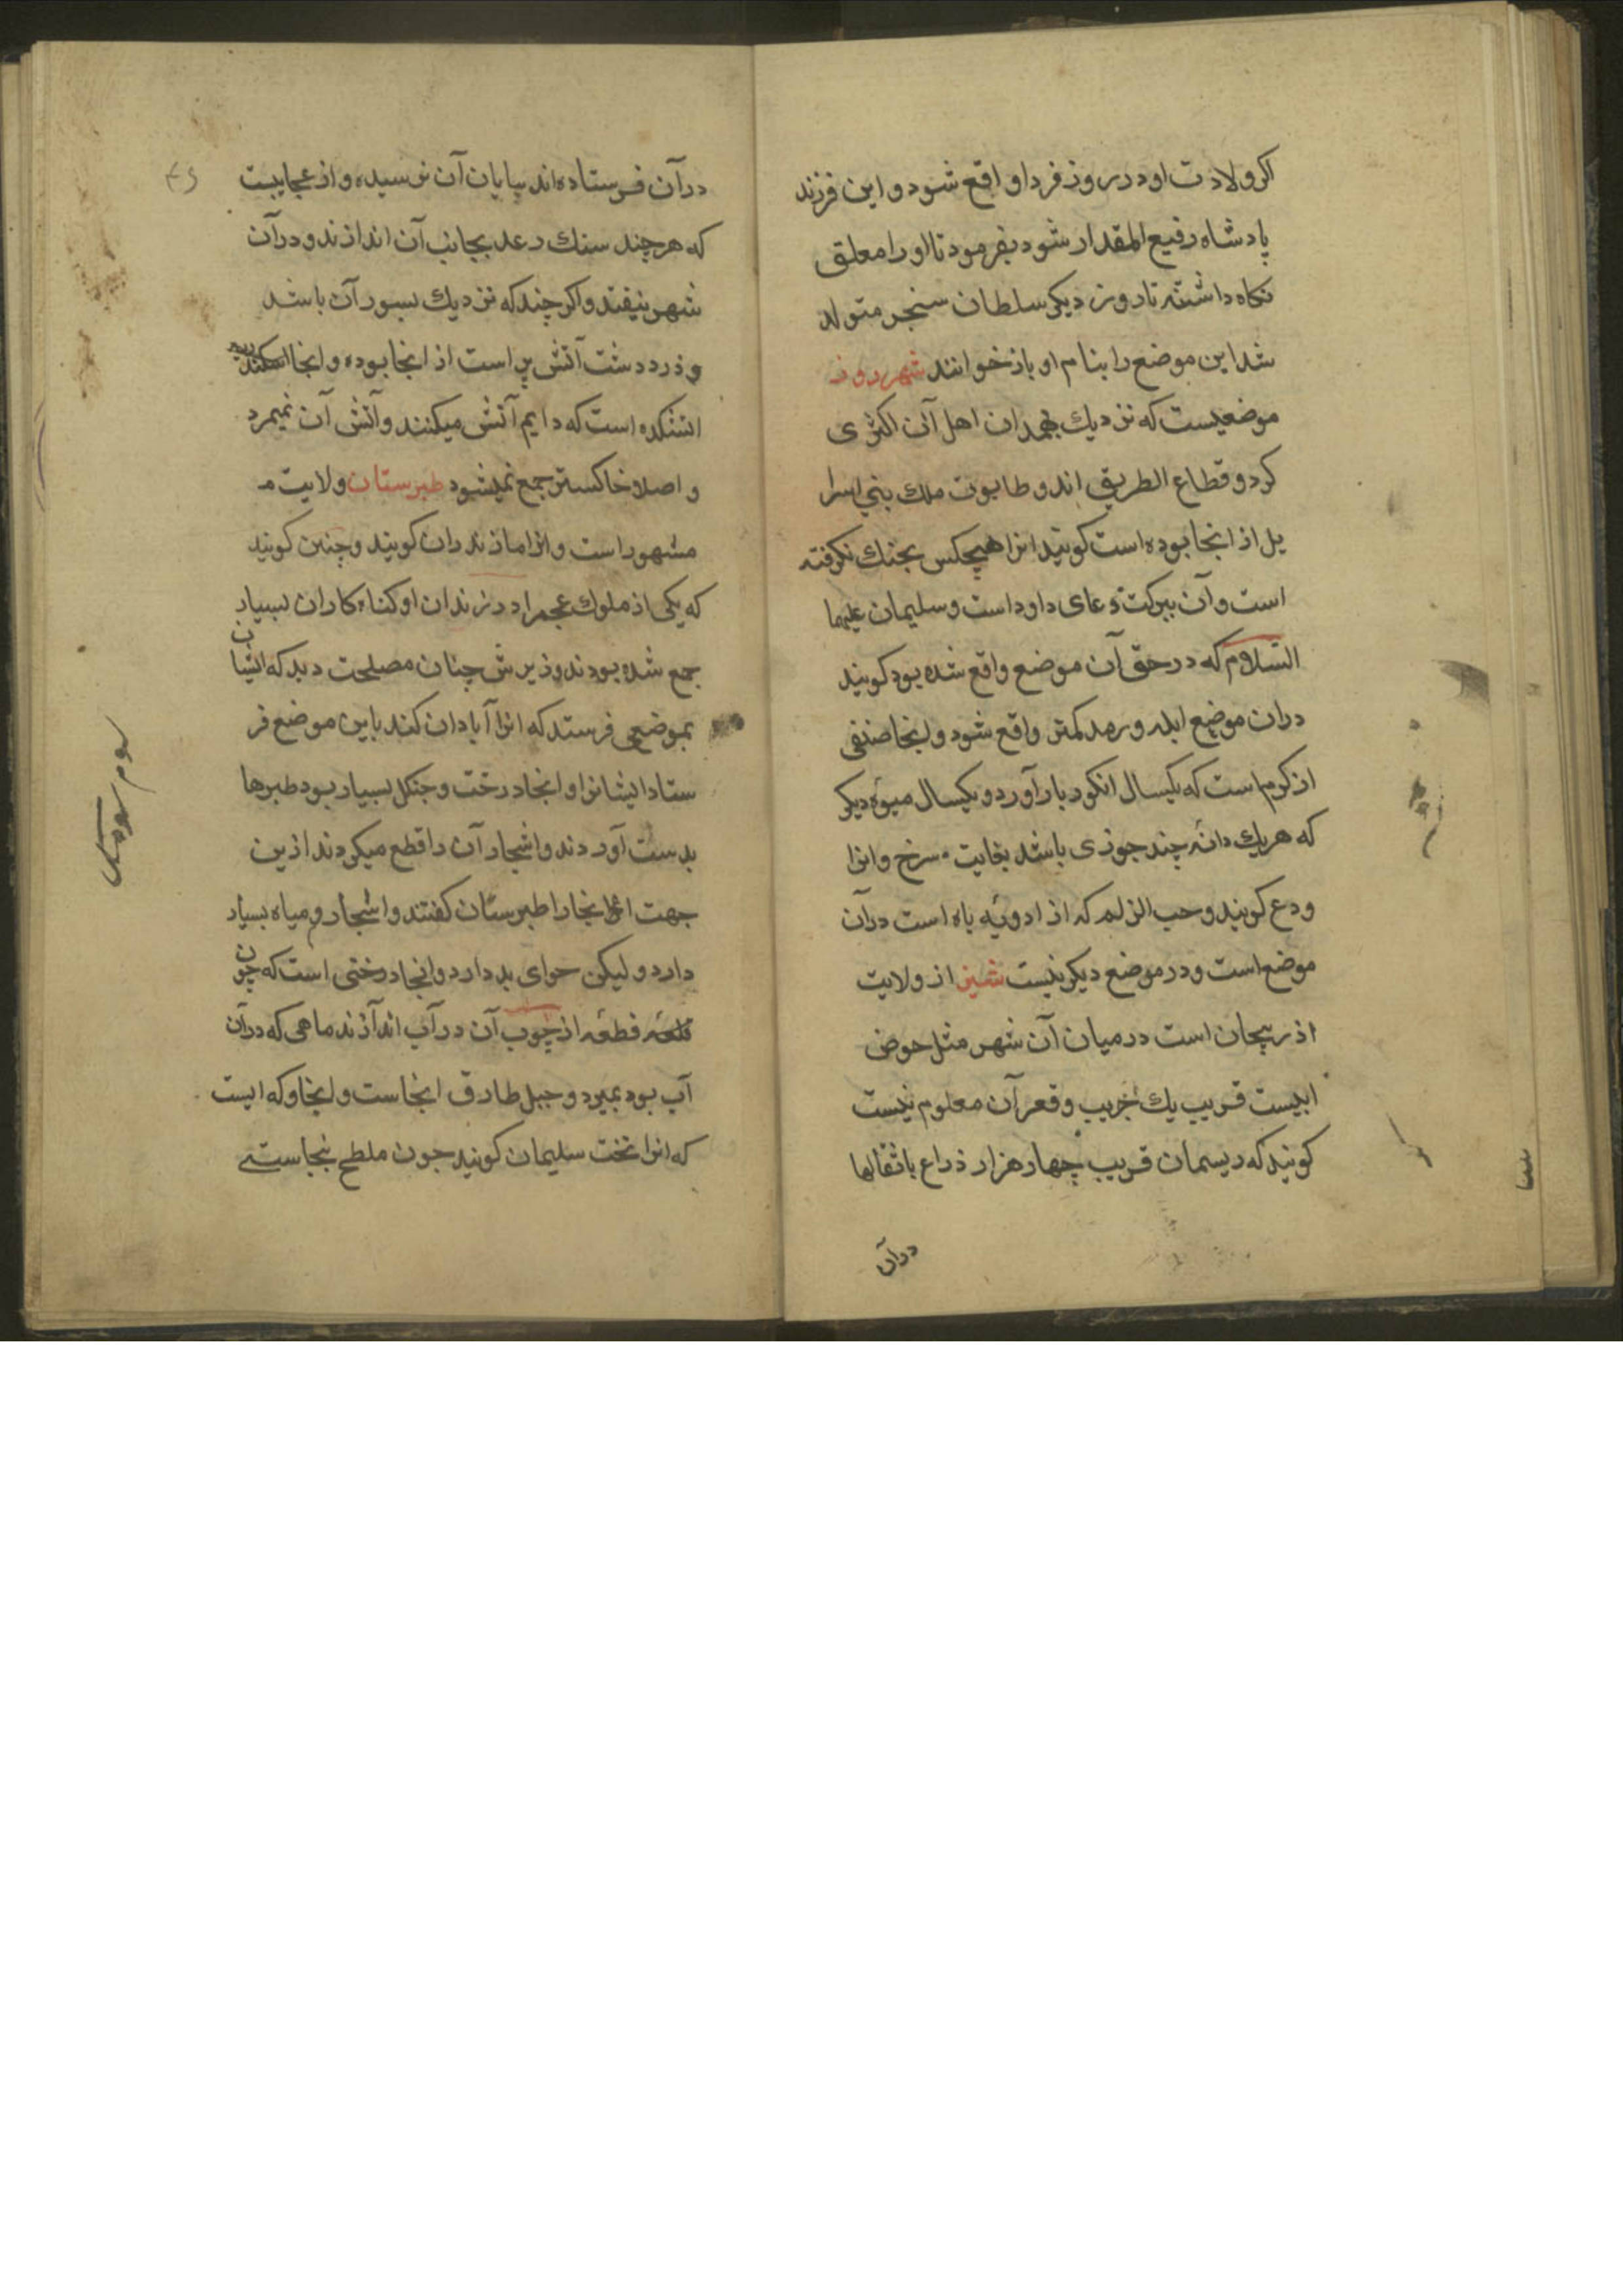 اکر ولادت او در روز فردا واقع شود و این فرزند
پادشاه رفیع المقدار شود بفرمود تا او را معلق
نکاه داشتند تا روز دیکر سلطان سنجر متولد
شد این موضع را بنام او باز خوانند شهرزور
موضعیست که نزدیك بهمدان اهل آن اکثری
کرد و قطاع الطریق اند و طابوت ملك بنی اسرا
یل از انجا بوده است کویند انرا هیچکس بجنك نکرفته
است و آن ببرکت دعای داود است و سلیمان علیهما
السّلام که در حق آن موضع واقع شده بود کویند
دران موضع ابله و رمد کمتر واقع شود و اینجا صنفی
از کرم است که یکسال انکور بار آورد و یکسال میوهٔ دیکر
که هر یك دانه چند جوزی باشد بغایت سرخ و انرا
ودع کویند و حب الزلم که از ادویه باه است درآن
موضع است و در موضع دیکر نیست شیز از ولایت
اذربیجان است در میان آن شهر مثل حوض
ابیست قریب یك جریب و قعر آن معلوم نیست
کویند که ریسمان قریب چهار هزار ذراع با ثقالها
درآن
درآن فرستاده اند بپایان آن نرسیده و از عجایبست
که هر چند سنك رعد بجانب آن اندازند و درآن
شهر نیفتد و اکر چند که نزدیك بسور آن باشد
و زرددشت آتش پراست از اینجا بوده و اینجا
اتشکده است که دایم آتش میکنند و آتش آن نمیمرد
و اصلا خاکستر جمع نمیشود طبرستان ولایت م
مشهور است و انرا مازندران کویند و چنین کویند
که یکی از ملوك عجم را در زندان او کناه کاران بسیار
جمع شده بودند وزیرش چنان مصلحت دید که ایشان
بموضعی فرستد که انرا آبادان کند باین موضع فر
ستاد ایشانرا و اینجا درخت و جنکل بسیار بود طبرها
بدست آوردند و اشجار آن را قطع میکردند ازین
جهت انجا را طبرستان کفتند و اشجار و میاه بسیار
دارد و لیکن هوای بد دارد و انجا درختی است که چون
قطعه از چوب آن در آب اندازند ماهی که درآن
آب بود بمیرد و جبل طارق اینجاست و اینجا وکه ایست
که انرا تخت سلیمان کویند چون ملطح بنجاستی